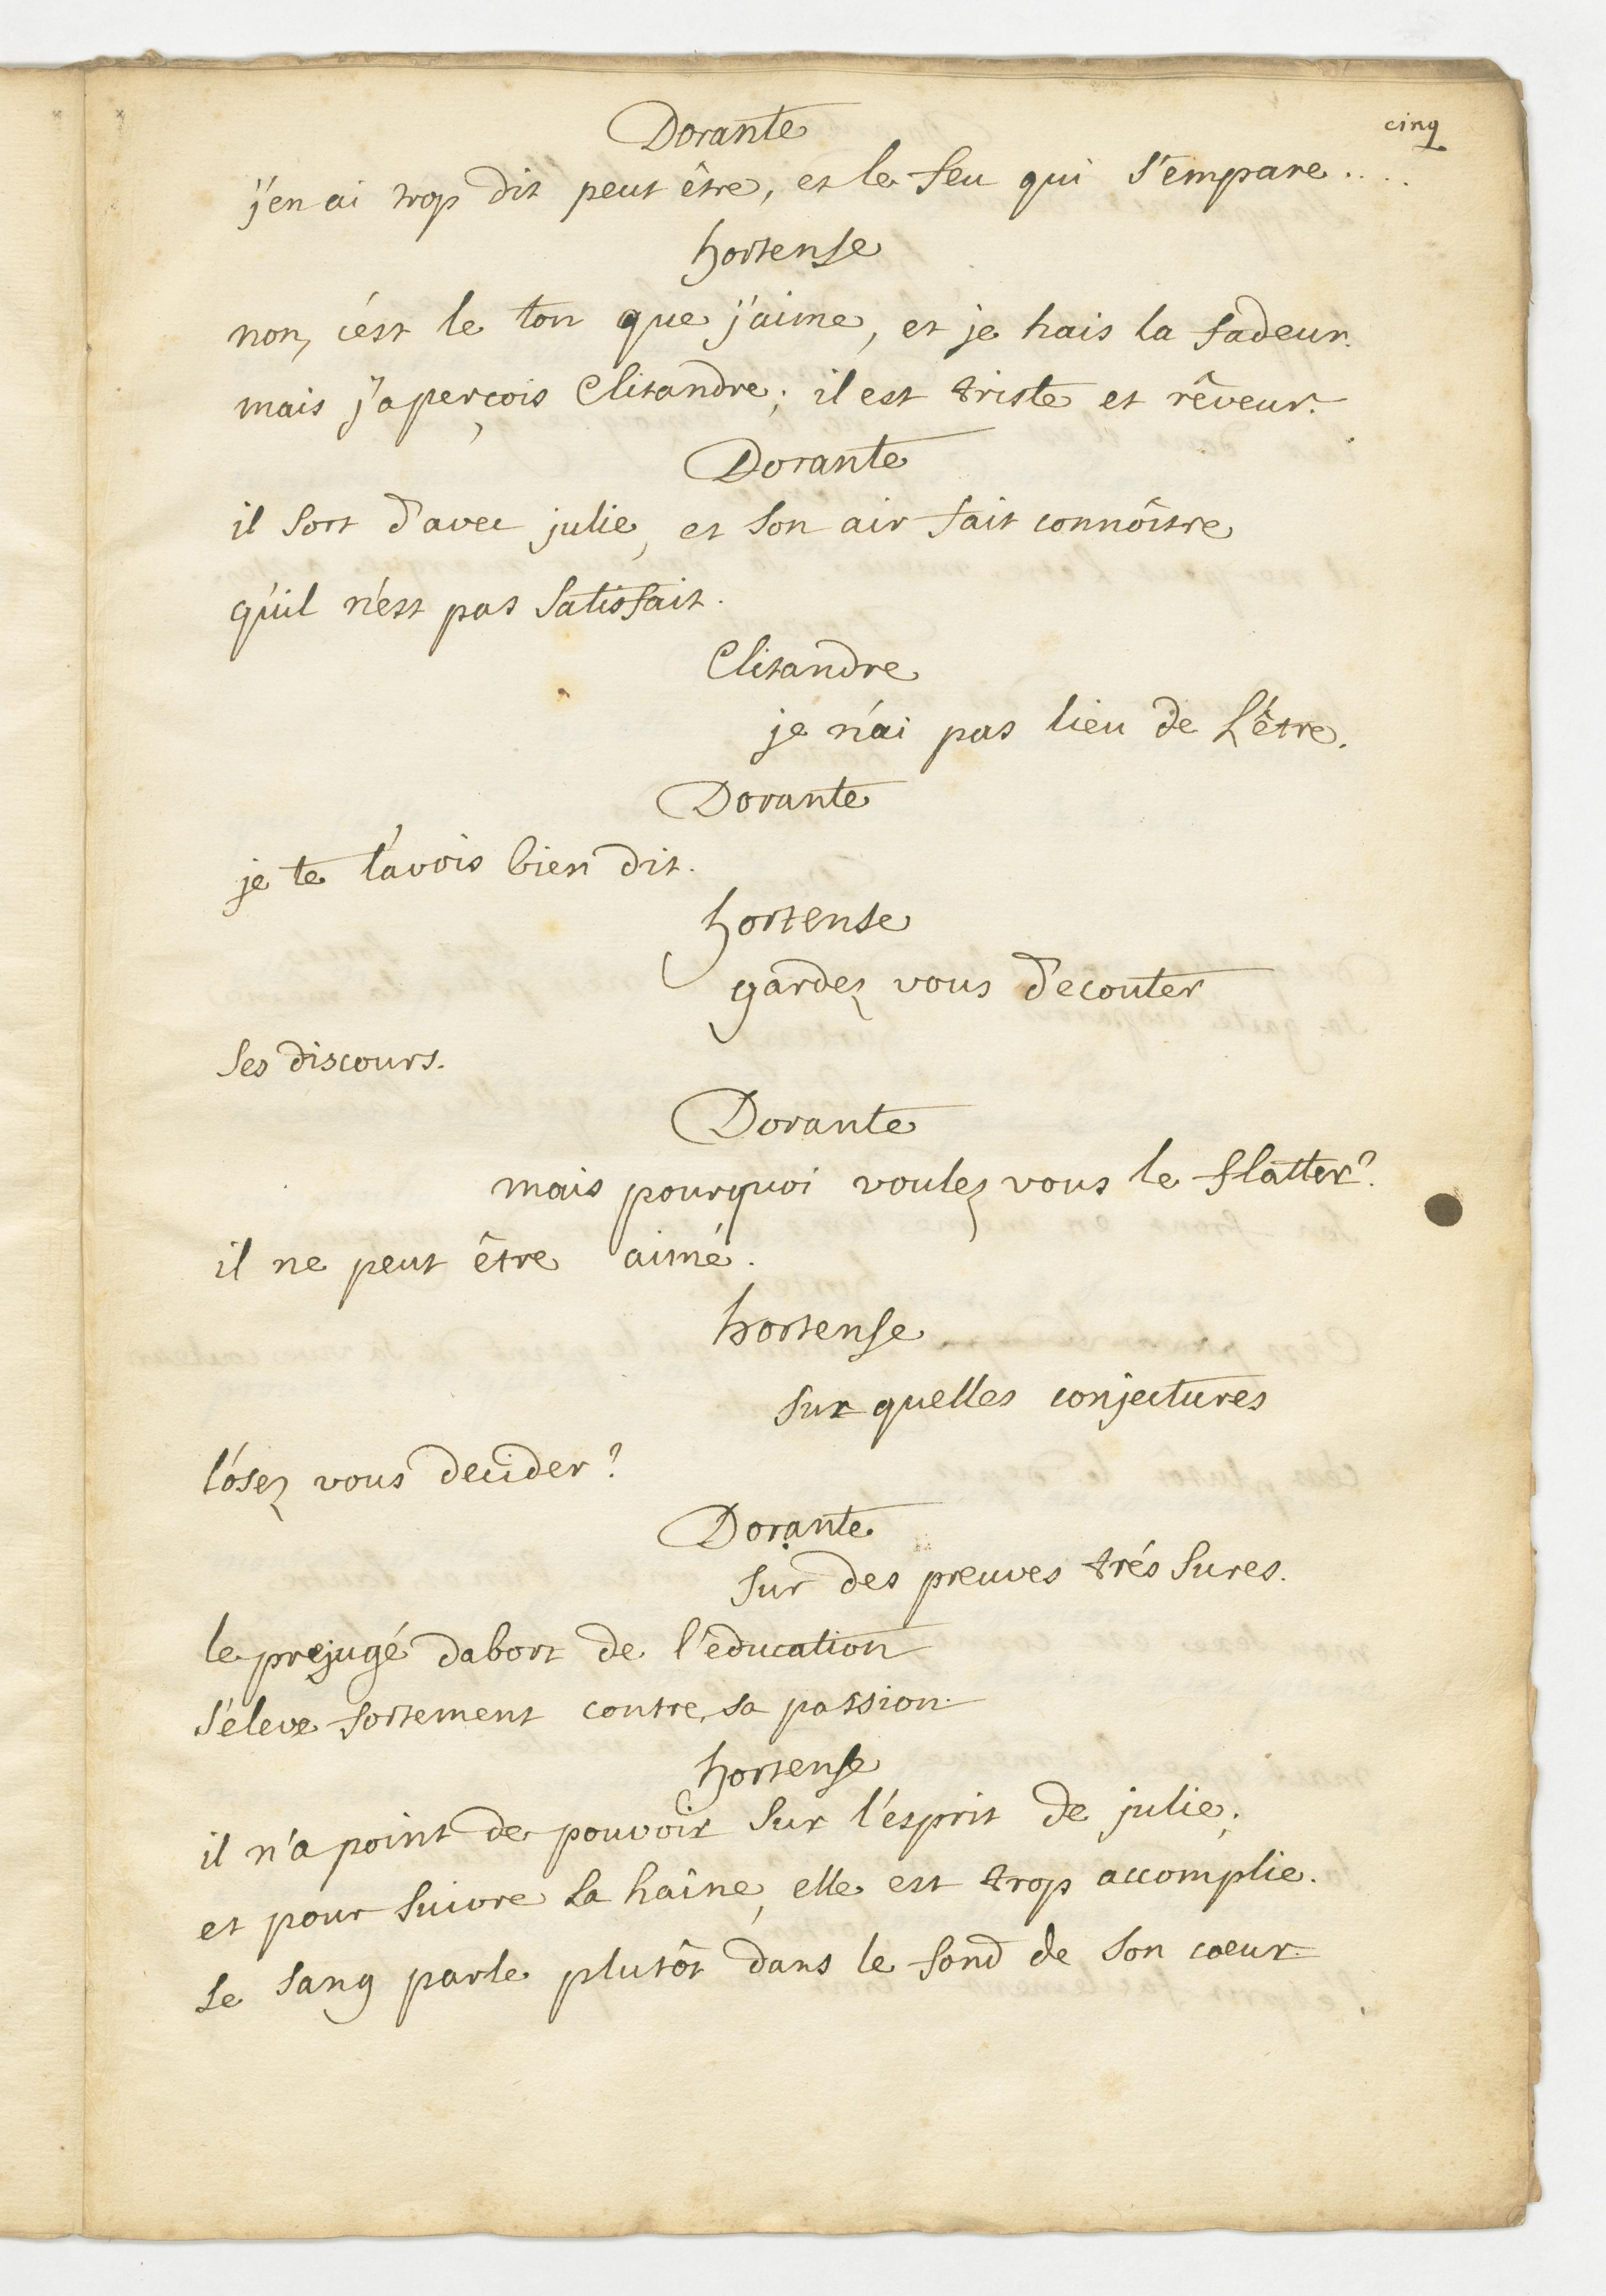 cinq
Dorante
j'en ai trop dit peut être, et le feu qui s'empare....
hortense
non, c'est le ton que j'aime, et je hais la fadeur.
mais j'aperçois Clitandre; il est triste et rêveur.
Dorante
il sort d'avec julie, et son air fait connôitre
qu'il n'est pas satisfait.
Clitandre
je n'ai pas lieu de L'être.
Dorante
je te l'avois bien dit.
hortense
gardez vous d'ecouter
ses discours.
Dorante
mais pourquoi voulez vous le flatter?
il ne peut être aimé.
hortense
sur quelles conjectures
l'osez vous decider?
Dorante
sur des preuves trés sures.
le prejugé dabort de l'education
s'eleve fortement contre sa passion.
hortense
il n'a point de pouvoir sur l'esprit de julie;
et pour suivre la haîne, elle est trop accomplie.
Le sang parle plutôt dans le fond de son coeur.